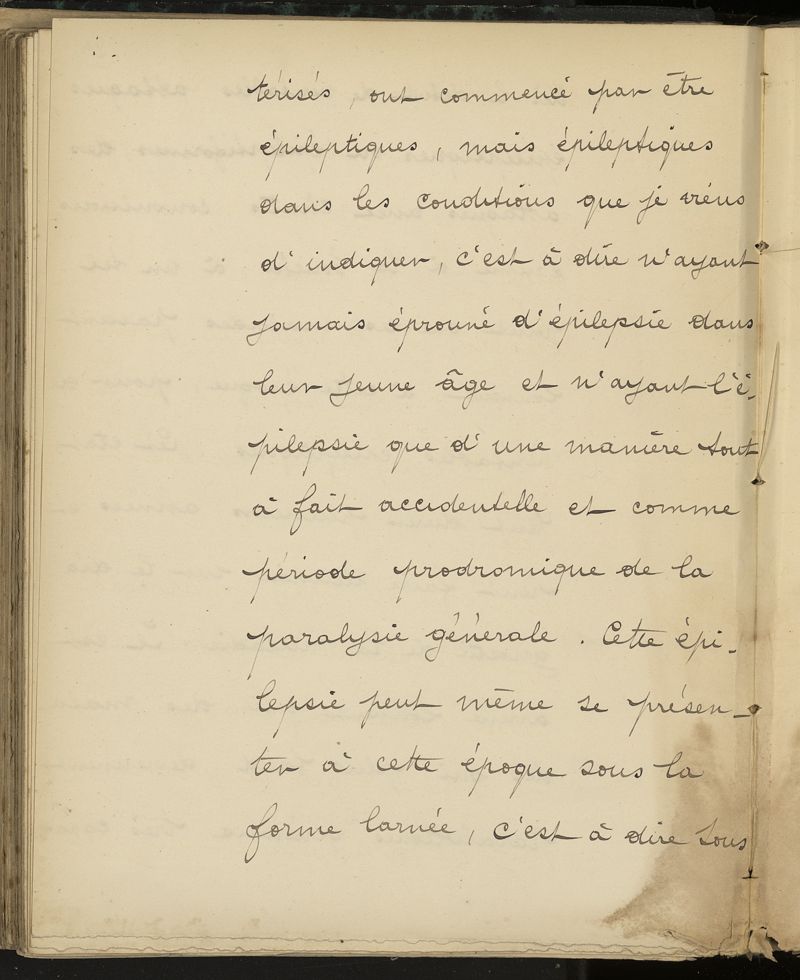 térisés, ont commencé par être
épileptiques, mais épileptiques
dans les conditions que je viens
d'indiquer, c'est à dire n'ayant
jamais éprouvé d'épilepsie dans
leur jeune âge et n'ayant l'é-
pilepsie que d'une manière tout
à fait accidentelle et comme
période prodromique de la
paralysie générale. Cette épi-
lepsie peut même se présen-
ter à cette époque sous la
forme larvée, c'est à dire sous